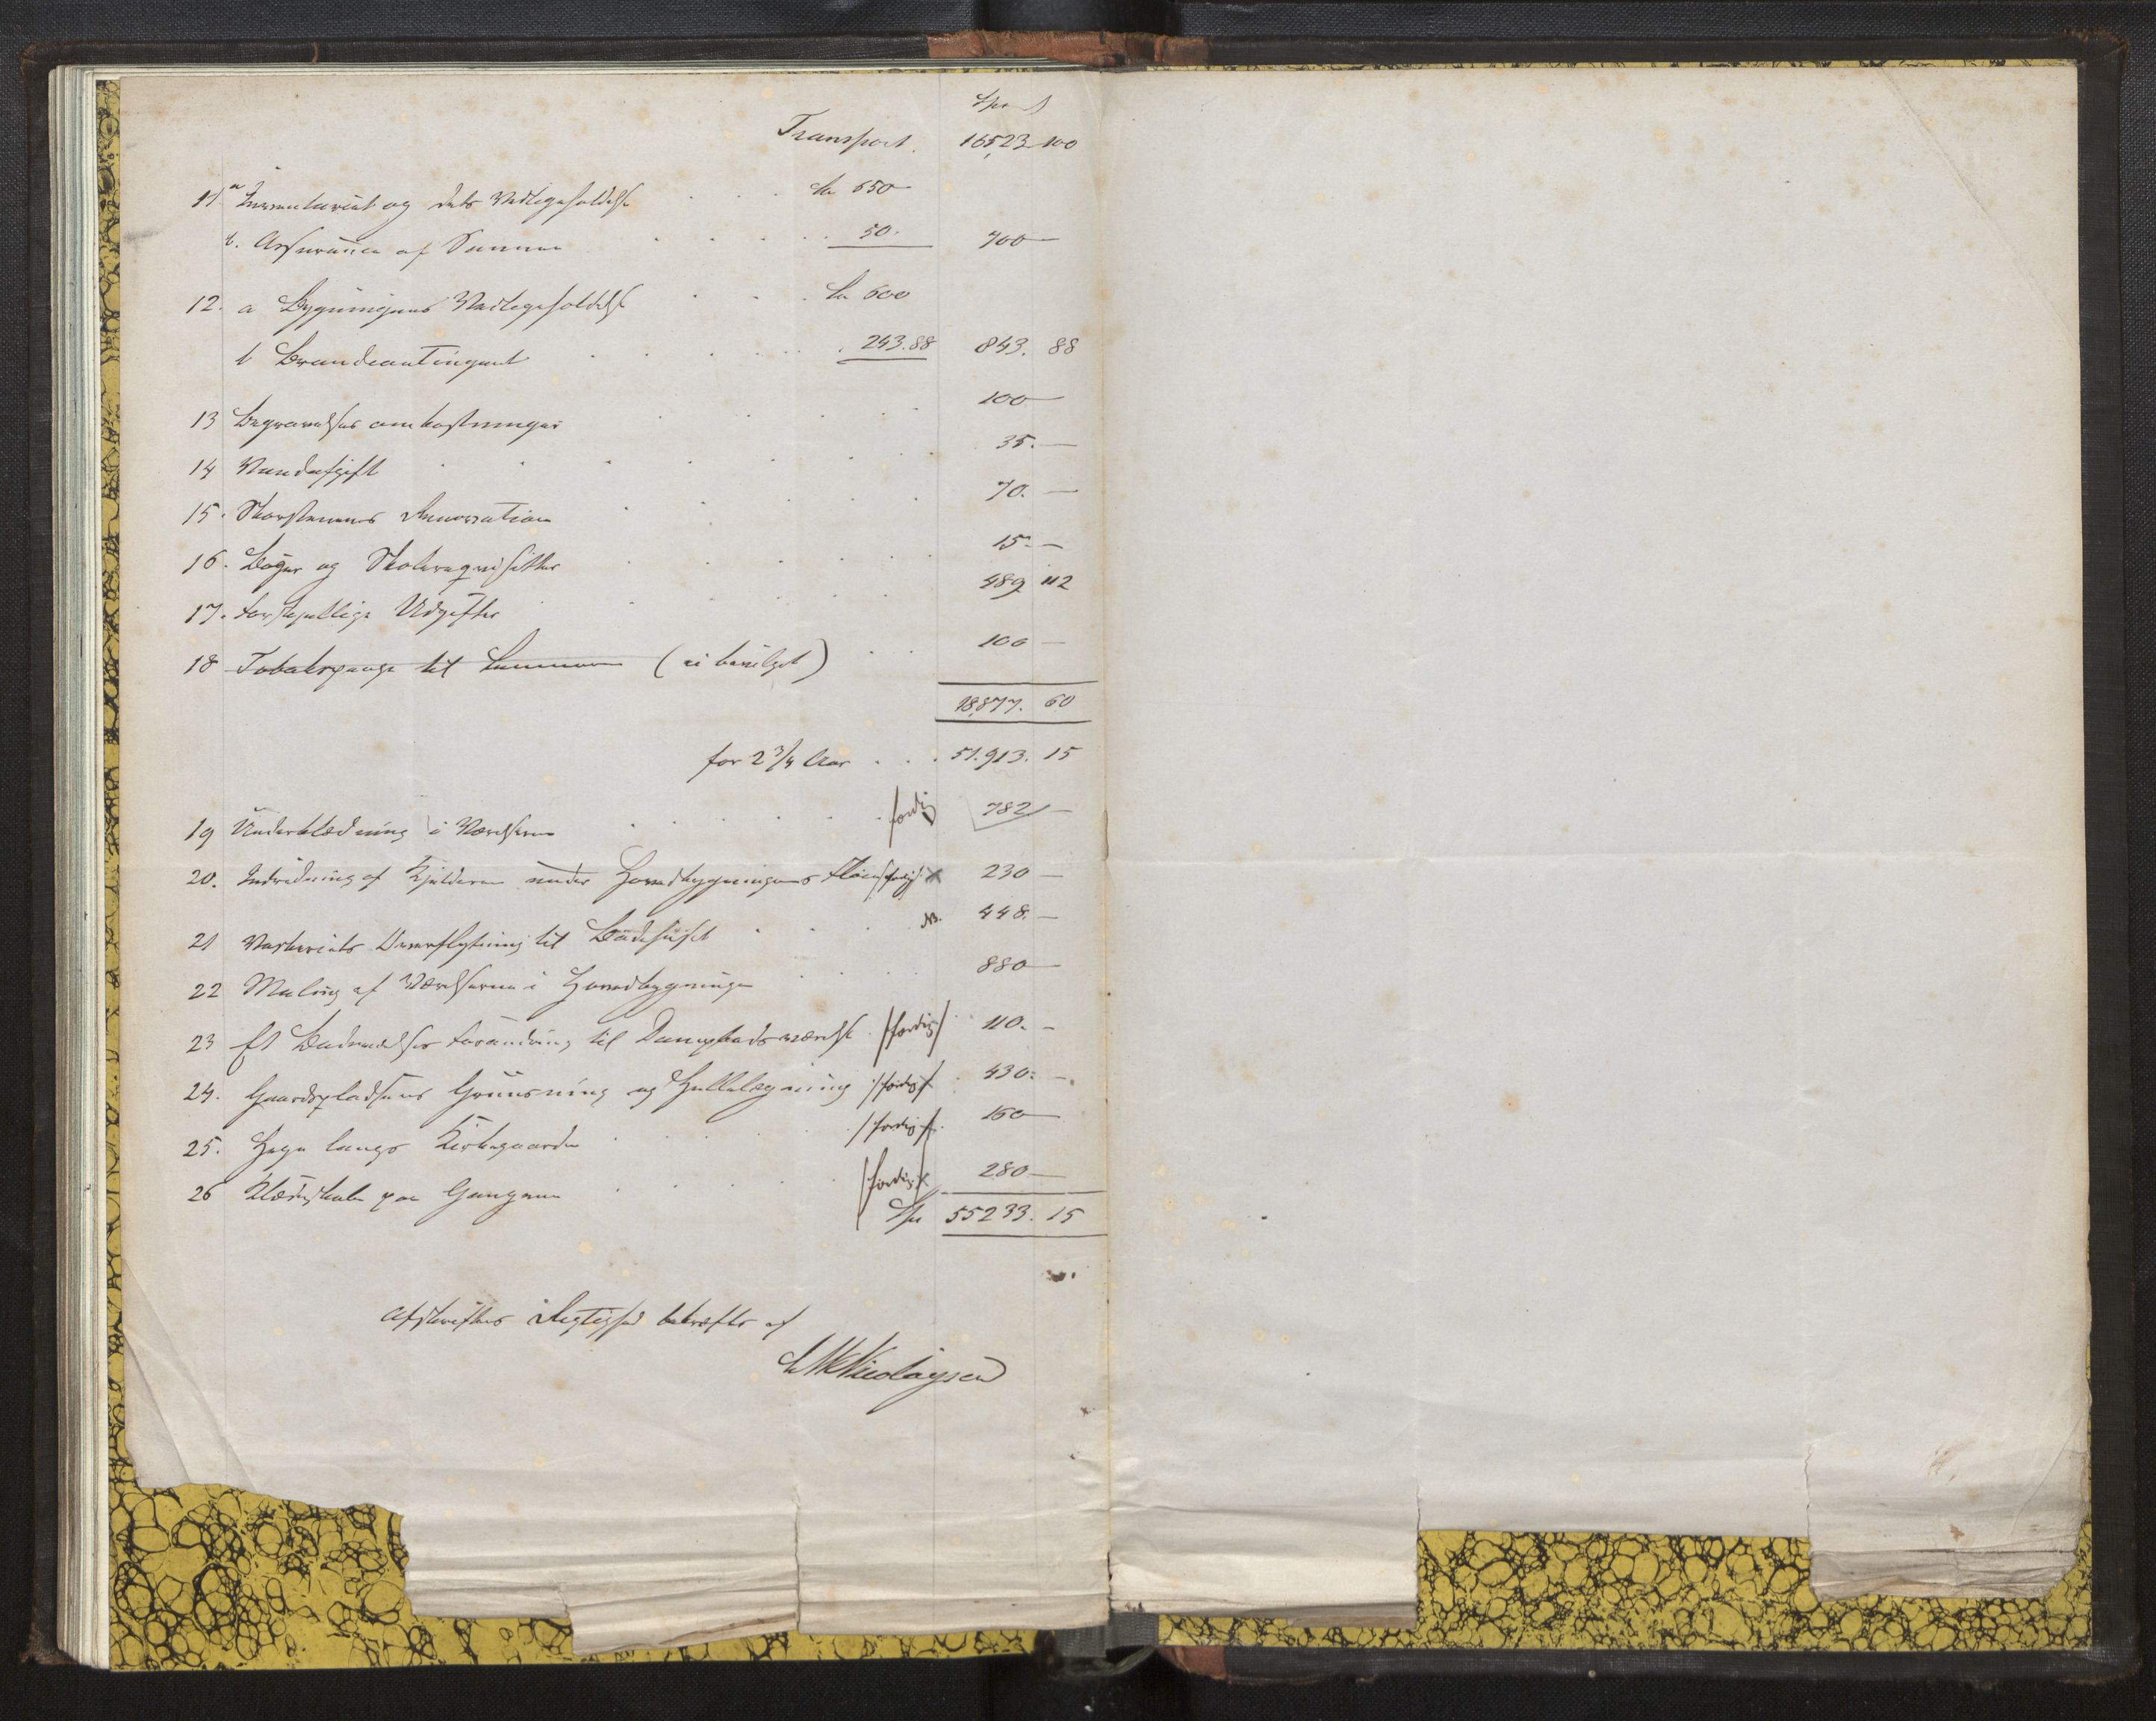 Spd ß
Transport. 16523 100
11 a Inventariet og dets Vedligeholdelse . . . Spd 650 —
b. Assurance af Samme . . . . . 50. 700 —
12. a Bygningens Vedligeholdelse . . . Spd 600
b Brandcontingent . . . . 243.88 843. 88
13 Begravelses omkostninger . . . . 100 —
14 Vandafgift . . . . . . 35. —
15. Skorstenens Renovation . . . . 70. —
16. Bøger og Skolereqvisitter . . . . 15. —
17. Forskjellige Udgifter . . . . 489 112
18 Tobakspenge til Lemmerne (ei bevilget) . . 100 —
18,877. 60
for 2 3/4 Aar . . . 51.913. 15
19 Underklædning i Værelserne . . . . færdig 782 —
20. Indredning af Kjelderen under Hovedbygningens Fløi /færdig/ x 230 —
21 Vaskeriets Overflytning til Badehuset . . . NB. 448. —
22 Maling af Værelserne i Hovedbygningen . . . 880 —
23 Et Badeværelses Forandring til Dampbadeværelse . /færdig/ . 110. —
24. Gaardspladsens Gruusning og Hellelægning /færdig/ . 430. —
25. Hegn langs Kirkegaarden . . . . /færdig/ . 160 —
26 Klædeskabe paa Gangene . . . . /færdig/ x 280 —
Spd 55233. 15
Afskriftens Rigtighed bekræfter af
Nicolaysen